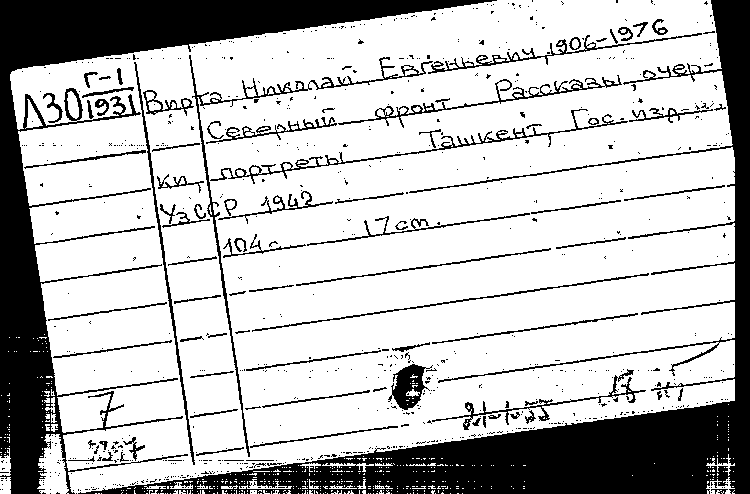 Л30 Г-1/1931
Вирта, Николай Евгеньевич, 1906-1976
Северный фронт. Рассказы, очер-
ки, портреты. Ташкент, Гос. изд-
УзССР, 1942
104 с 17 cm.
7
21-1-55